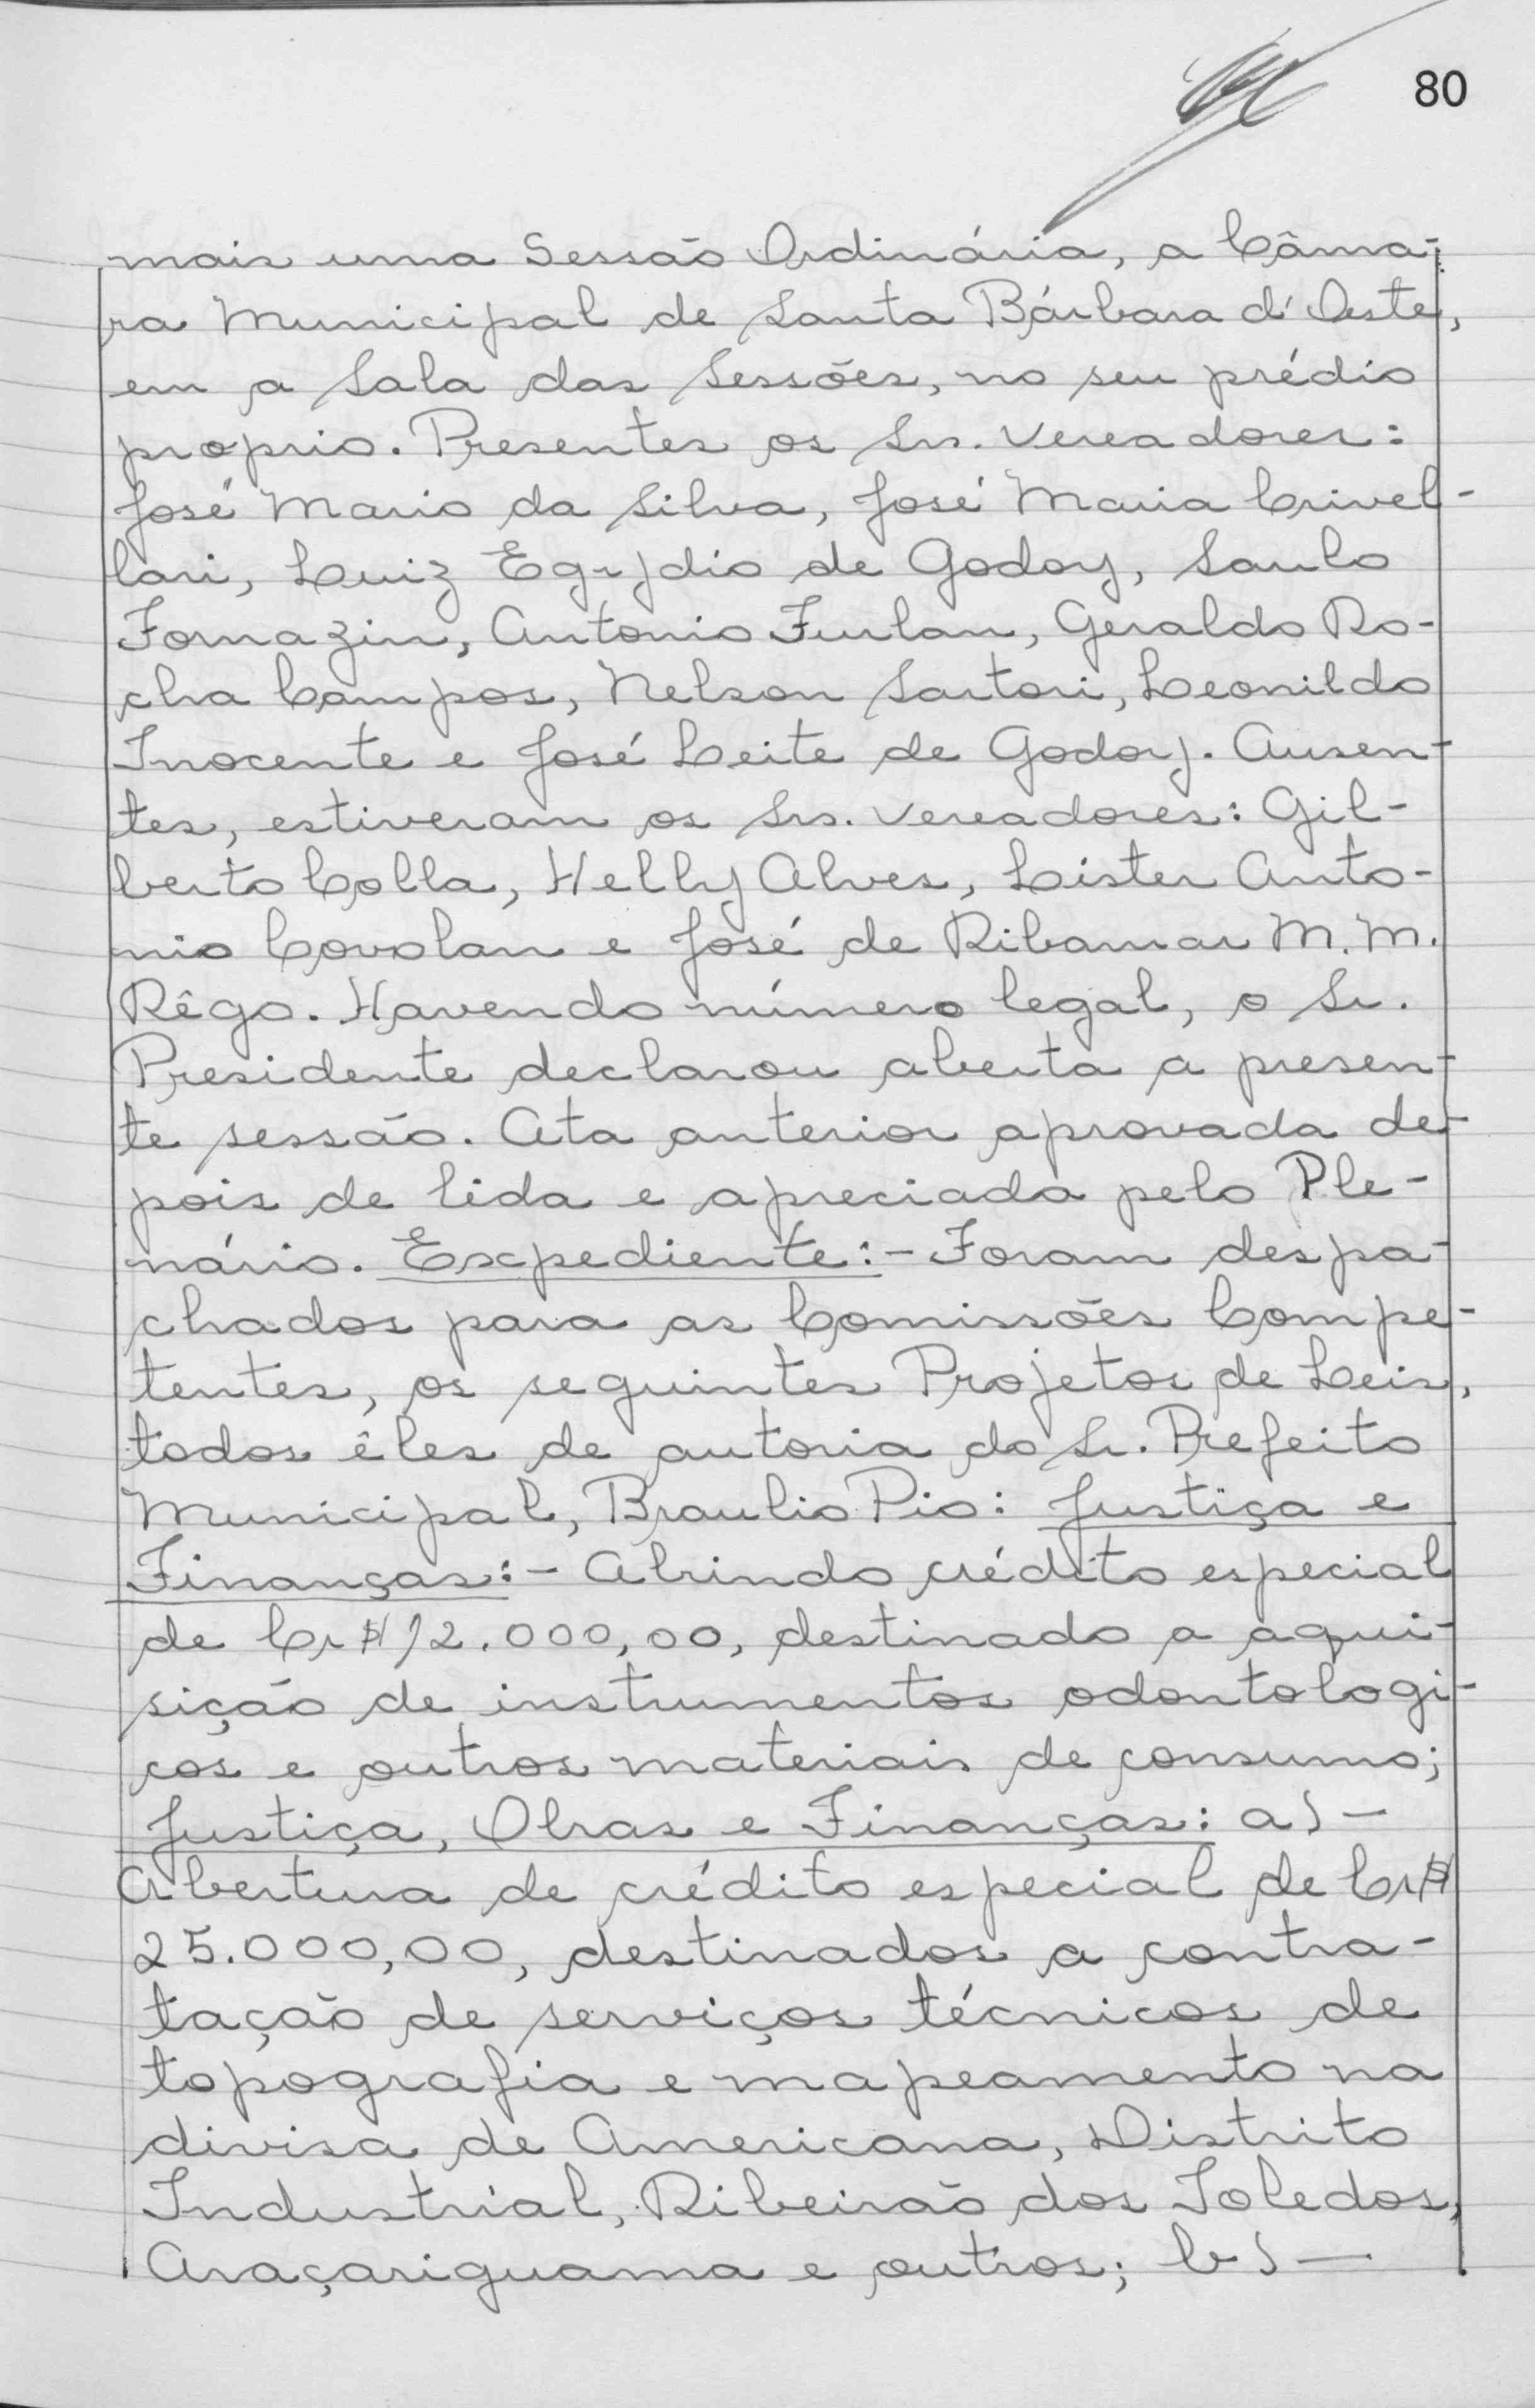 80
mais uma Sessão Ordinária, a Câma-
ra Municipal de Santa Bárbara d'Oeste,
em a Sala das Sessões, no seu prédio
proprio. Presentes os Srs. Vereadores:
José Mario da Silva, José Maria Crivel-
lari, Luiz Egydio de Godoy, Saulo
Fornazin, Antonio Furlan, Geraldo Ro-
cha Campos, Nelson Sartori, Leonildo
Inocente e José Leite de Godoy. Ausen-
tes, estiveram os Srs. Vereadores: Gil-
berto Colla, Helly Alves, Lister Anto-
nio Covolan e José de Ribamar M. M.
Rêgo. Havendo número legal, o Sr.
Presidente declarou aberta a presen-
te sessão. Ata anterior aprovada de-
pois de lida e apreciada pelo Ple-
nário. Expediente:- Foram despa-
chados para as Comissões Compe-
tentes, os seguintes Projetos de Leis,
todos êles de autoria do Sr. Prefeito
Municipal, Braulio Pio: Justiça e
Finanças:- Abrindo crédito especial
de Cr$ 12.000,00, destinado a aqui-
sição de instrumentos odontologi-
cos e outros materiais de consumo;
Justiça, Obras e Finanças: a)-
Abertura de crédito especial de Cr$
25.000,00, destinados a contra-
tação de serviços técnicos de
topografia e mapeamento na
divisa de Americana, Distrito
Industrial, Ribeirão dos Toledos,
Araçariguama e outros; b)-